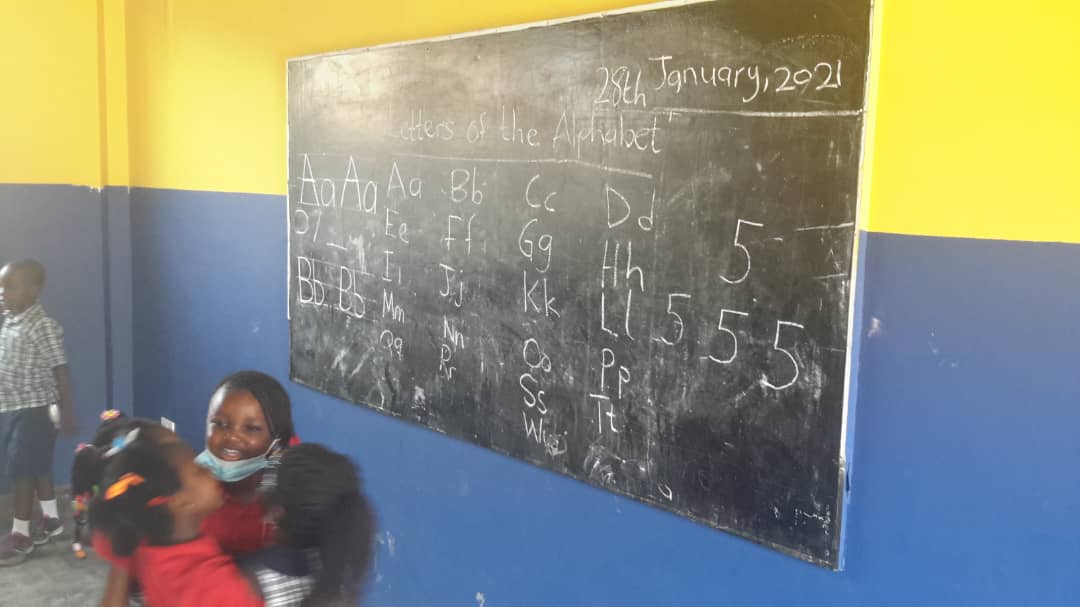 28th January, 2021
Letters of the Alphabet
Aa Aa Aa Bb Cc Dd
Ee Ff Gg Hh 5
Bb Bb Ii Jj Kk Ll 5 5 5
Mm Nn Oo Pp
Qq Rr Ss Tt
Ww